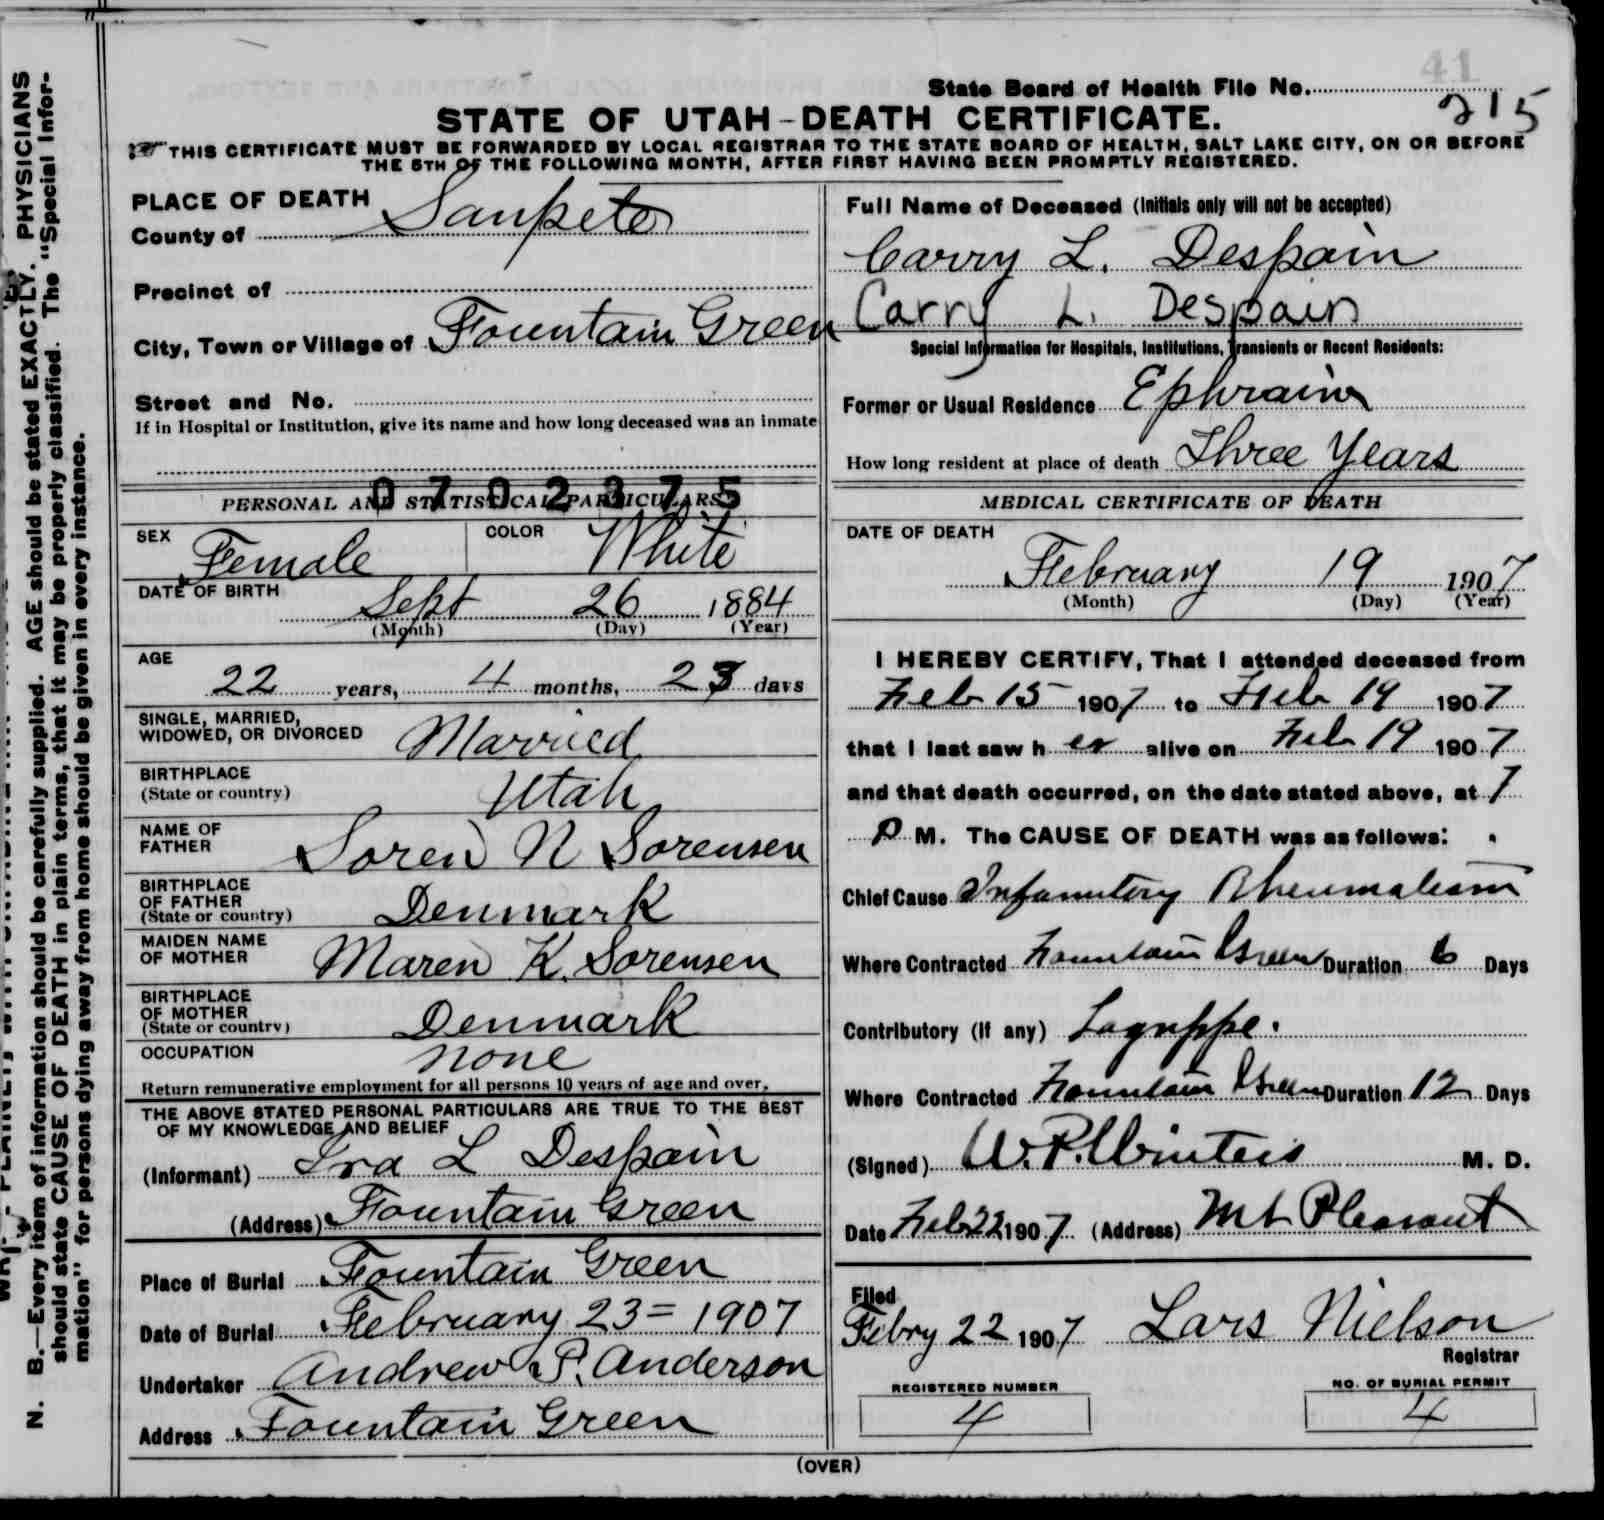 41
State Board of Health File No. 215
STATE OF UTAH-DEATH CERTIFICATE.
THIS CERTIFICATE MUST BE FORWARDED BY LOCAL REGISTRAR TO THE STATE BOARD OF HEALTH, SALT LAKE CITY, ON OR BEFORE
THE 5TH OF THE FOLLOWING MONTH, AFTER FIRST HAVING BEEN PROMPTLY REGISTERED.
PLACE OF DEATH
County of Sanpete
Precinct of
City, Town or Village of Fountain Green
Street and No.
If in Hospital or Institution, give its name and how long deceased was an inmate
0702375
PERSONAL AND STATISTICAL PARTICULARS
SEX Female COLOR White
DATE OF BIRTH
Sept 26 1884
(Month) (Day) (Year)
AGE
22 years, 4 months, 23 days
SINGLE, MARRIED,
WIDOWED, OR DIVORCED Married
BIRTHPLACE
(State or country) Utah
NAME OF
FATHER Soren N Sorensen
BIRTHPLACE
OF FATHER
(State or country) Denmark
MAIDEN NAME
OF MOTHER Maren K. Sorensen
BIRTHPLACE
OF MOTHER
(State or country) Denmark
OCCUPATION none
Return remunerative employment for all persons 10 years of age and over.
THE ABOVE STATED PERSONAL PARTICULARS ARE TRUE TO THE BEST
OF MY KNOWLEDGE AND BELIEF
(Informant) Ira L Despain
(Address) Fountain Green
Place of Burial Fountain Green
Date of Burial February 23= 1907
Undertaker Andrew P. Anderson
Address Fountain Green
Full Name of Deceased (Initials only will not be accepted)
Carry L. Despain
Carry L. Despain
Special Information for Hospitals, Institutions, Transients or Recent Residents:
Former or Usual Residence Ephraim
How long resident at place of death Three Years
MEDICAL CERTIFICATE OF DEATH
DATE OF DEATH
February 19 1907
(Month) (Day) (Year)
I HEREBY CERTIFY, That I attended deceased from
Feb 15 1907 to Feb 19 1907
that I last saw her alive on Feb 19 1907
and that death occurred, on the date stated above, at 7
P M. The CAUSE OF DEATH was as follows:
Chief Cause Infamitory Rheumatism
Where Contracted Fountain Green Duration 6 Days
Contributory (if any) Lagrippe.
Where Contracted Fountain Green Duration 12 Days
(Signed) W. P. Winters M. D.
Date Feb 22 1907 (Address) Mt Pleasant
Filed
Febry 22 1907 Lars Nielson
Registrar
REGISTERED NUMBER
4
NO. OF BURIAL PERMIT
4
(OVER)
N. B.—Every item of information should be carefully supplied. AGE should be stated EXACTLY. PHYSICIANS
should state CAUSE OF DEATH in plain terms, that it may be properly classified. The "Special Infor-
mation" for persons dying away from home should be given in every instance.